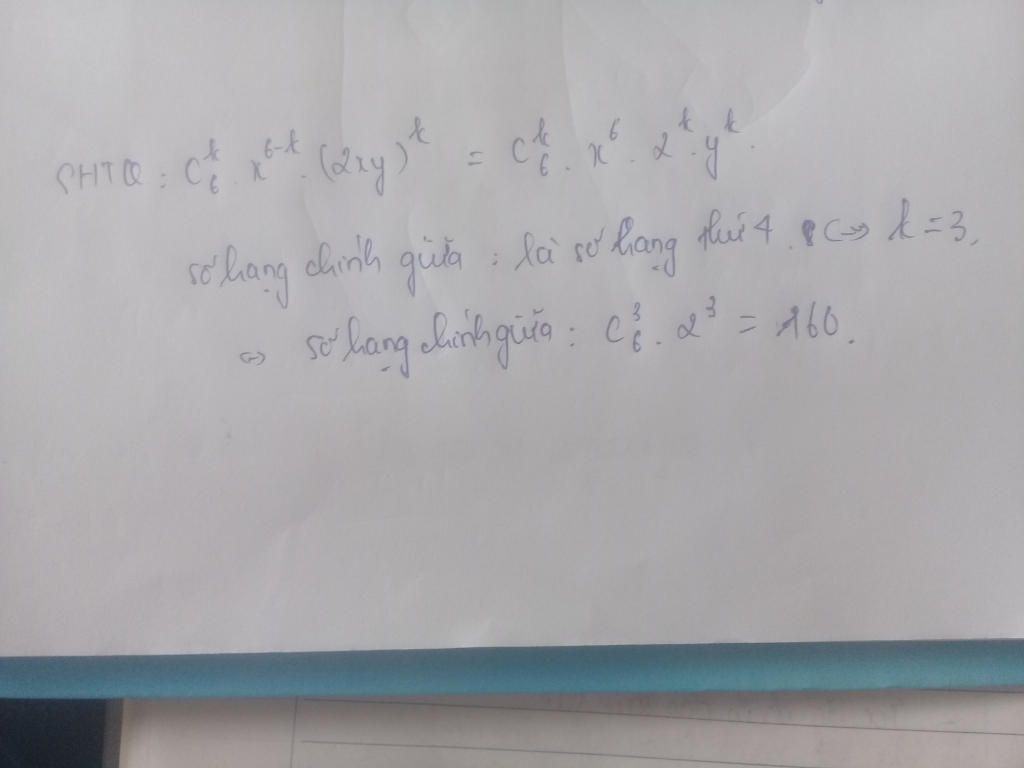 SHTQ : C₆ᵏ . x⁶⁻ᵏ . (2xy)ᵏ = C₆ᵏ . x⁶ . 2ᵏ . yᵏ .
số hạng chính giữa : là số hạng thứ 4 . (=> k = 3 .
=> số hạng chính giữa : C₆³ . 2³ = 160 .